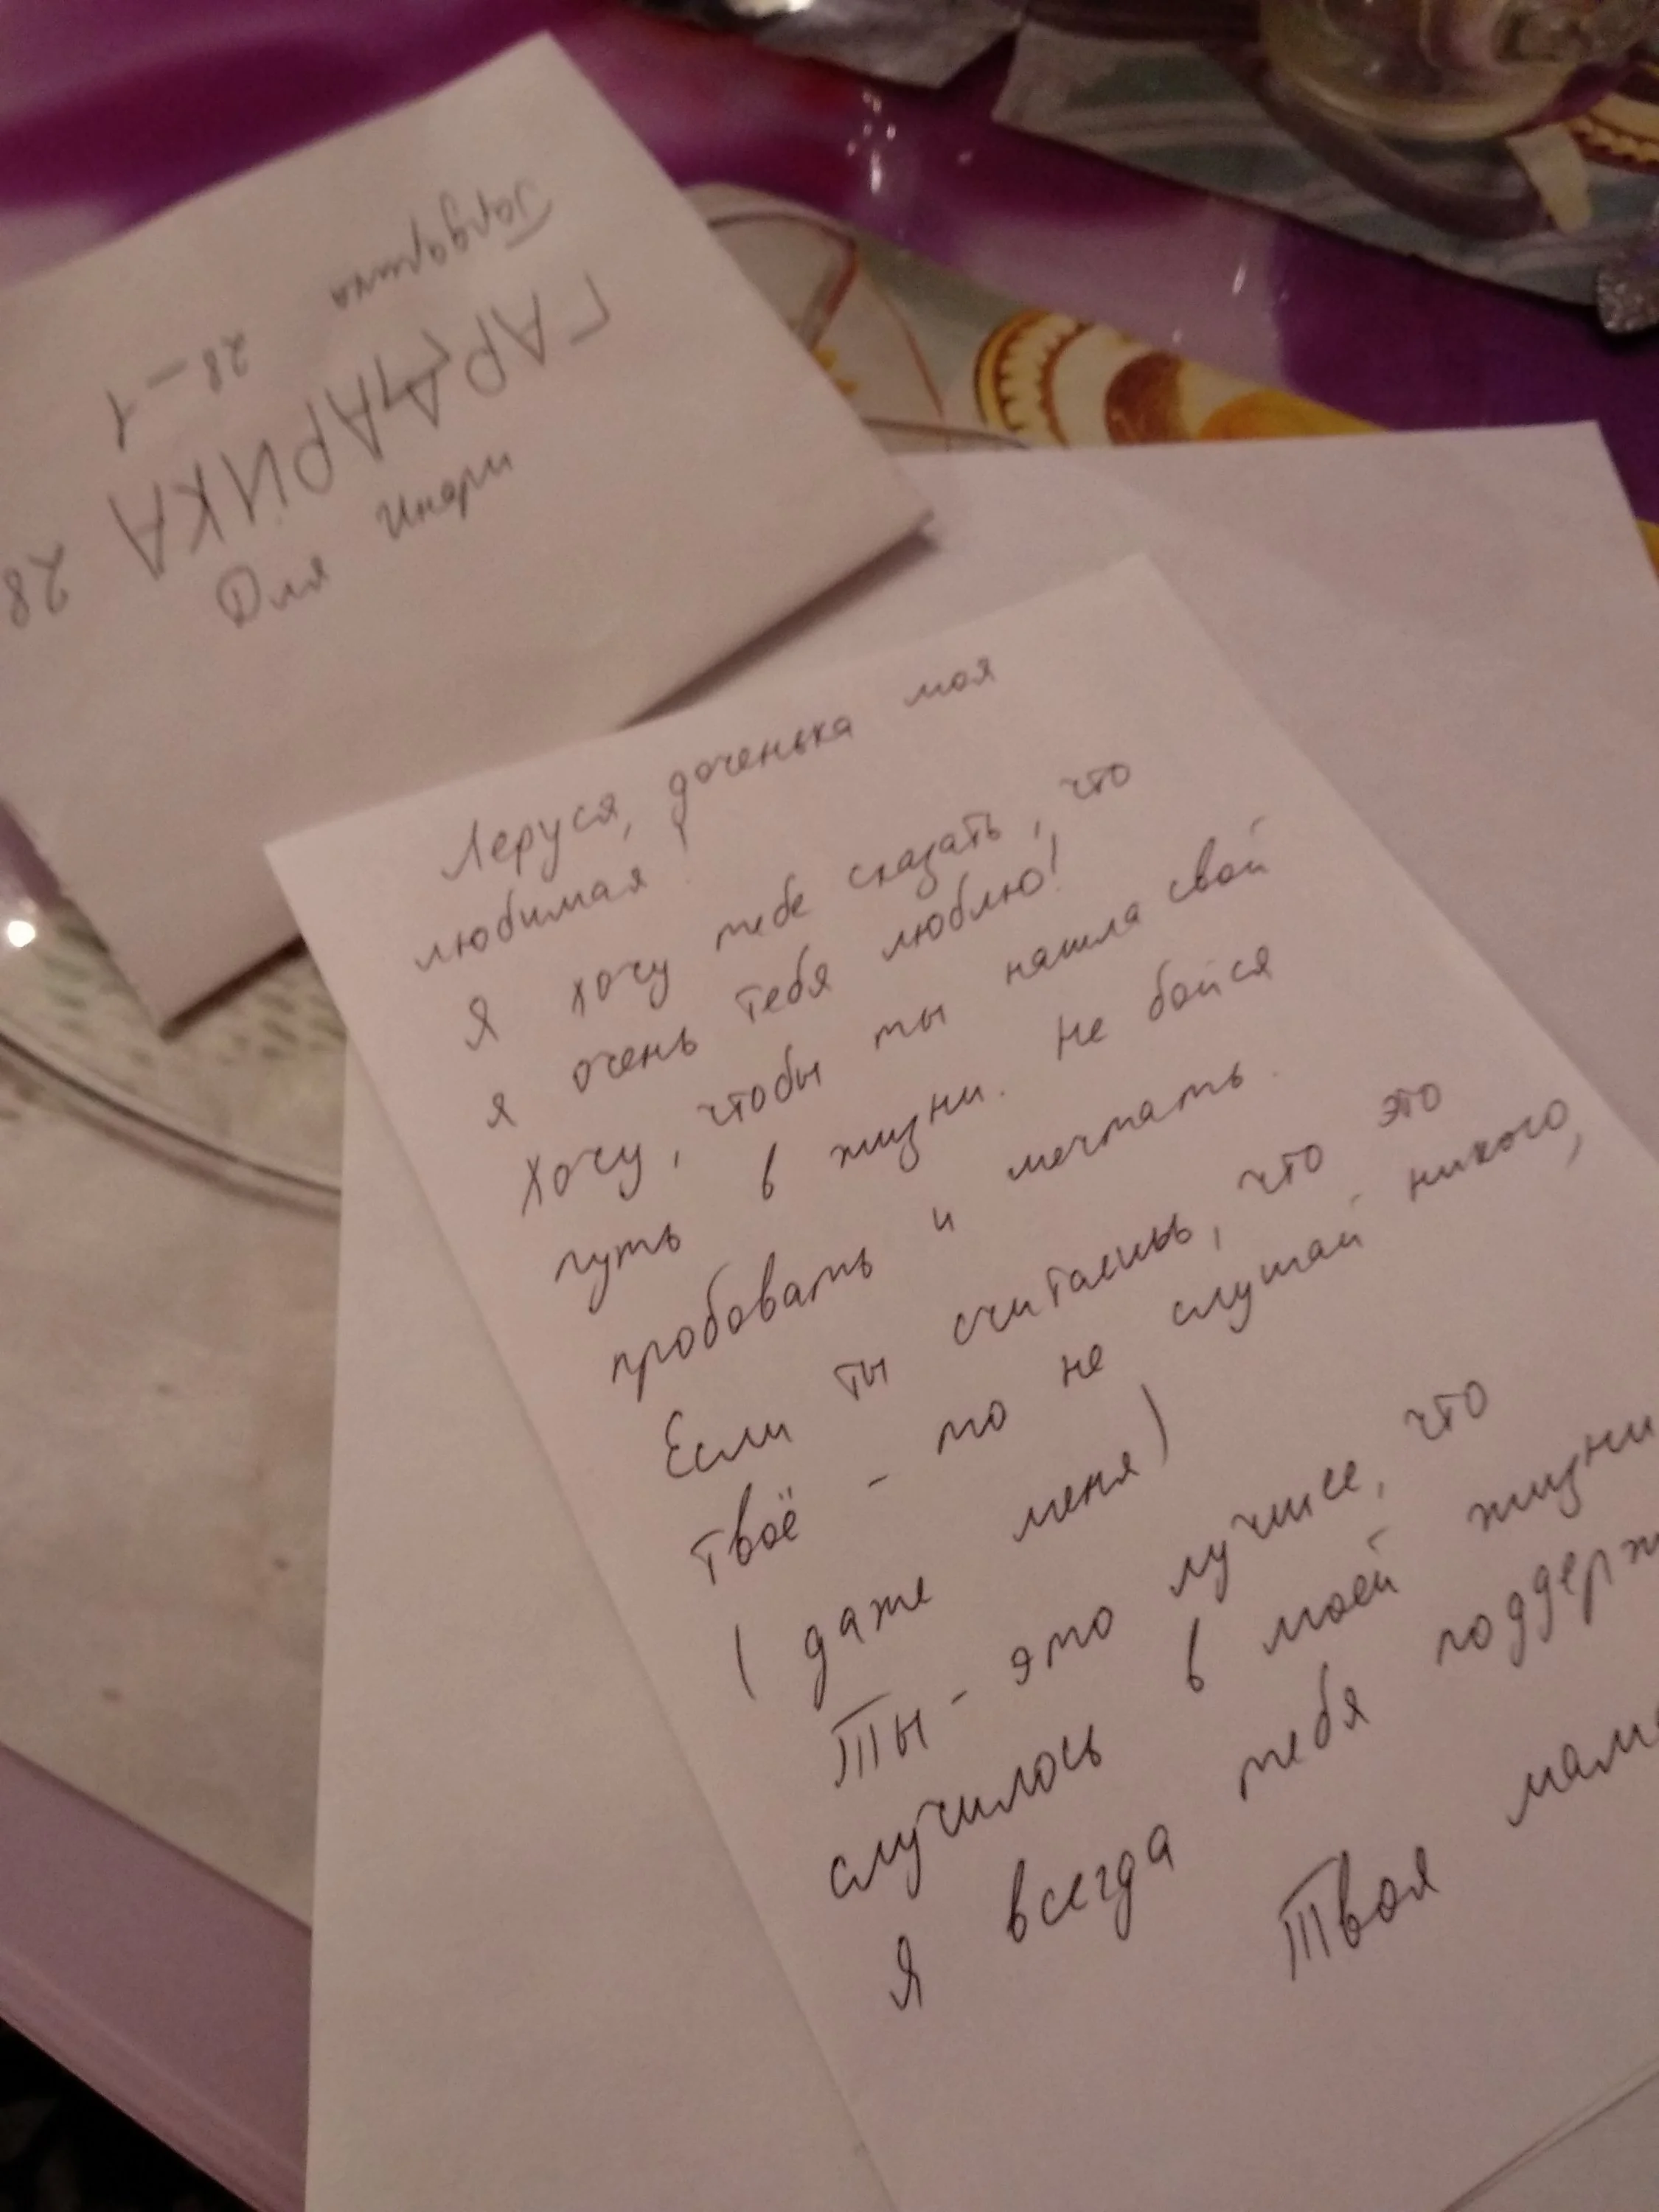 28-1
ГАРДАРИКА 28
Для Инары
Леруся, доченька моя
любимая!
Я хочу тебе сказать, что
я очень тебя люблю!
Хочу, чтобы ты нашла свой
путь в жизни. Не бойся
пробовать и мечтать.
Если ты считаешь, что это
твоё - то не слушай никого,
(даже меня)
Ты - это лучшее, что
случилось в моей жизни
Я всегда тебя поддерж
Твоя мама